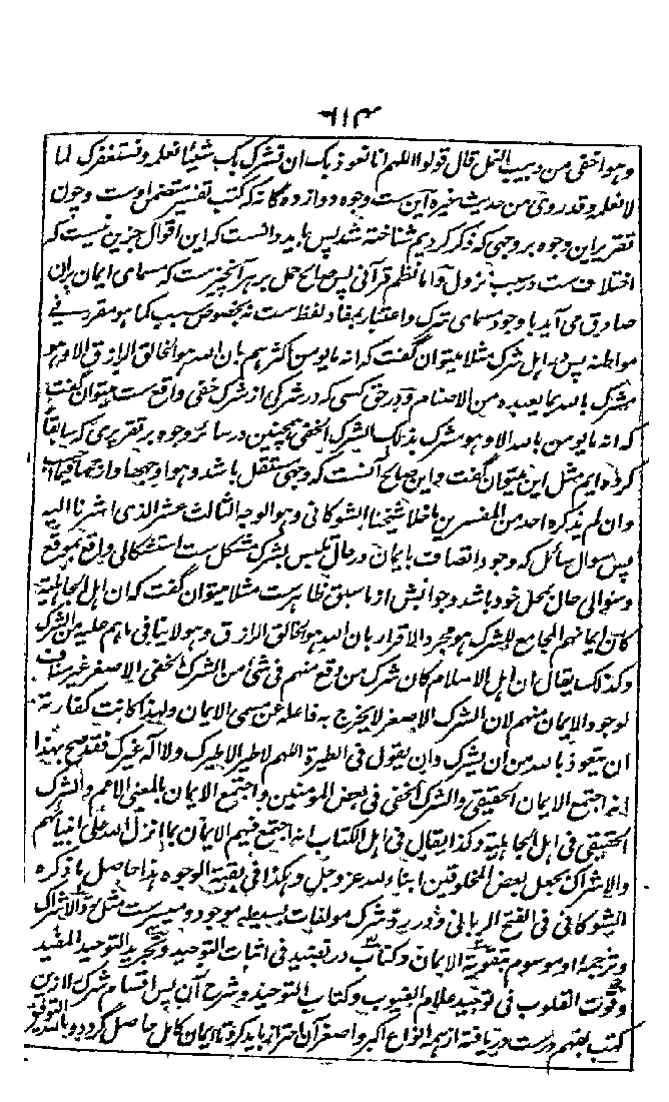 ۶۱۴
وهو اخفى من دبيب النمل قال قولوا اللهم انا نعوذ بك ان نشرك بك شيئا نعلمه ونستغفرك لما
لا نعلمه وقد روى من حديث غيره این ست وجوه دوازده گانه که کتب تفسیر متضمن اوست و چون
تقریر این وجوه بر وجهی که ذکر کردیم شناخته شد پس باید دانست که این اقوال جز این نیست که
اختلاف ست در سبب نزول و اما نظم قرآنی پس صالح حمل بر هر آنچیزست که مسمای ایمان بران
صادق می آید با وجود مسمای شرک و اعتبار بمفاد لفظ ست نه بخصوص سبب كما هو مقرر في
مواطنه پس در اهل شرک مثلا میتوان گفت که انه ما يؤمن اكثرهم بان الله هو الخالق الرازق الا وهو
مشرك بالله بما يعبده من الاصنام و در حق کسی که در شرکی از شرک خفی واقع ست میتوان گفت
که انه ما يؤمن بالله الا وهو مشرك بذلك الشرك الخفي و همچنین در سائر وجوه بر تقریری که سابقاً
کرده ایم مثل این میتوان گفت و این صالح آنست که وجهی مستقل باشد وهو اوجهها وارجحها
وان لم يذكره احد من المفسرين ما خلا شيخنا الشوكاني وهو الوجه الثالث عشر الذي اشرنا اليه
پس سوال سائل که وجود اتصاف بایمان در حال تلبس بشرک مشکل ست استشکالی واقع بموقع
و سوالی حال بمحل خود باشد و جوابش از ما سبق ظاهرست مثلا میتوان گفت که ان اهل الجاهلية
كان ايمانهم المجامع للشرك هو مجرد الاقرار بان الله هو الخالق الرازق وهو لا ينافي ما هم عليه من الشرك
وكذلك يقال ان اهل الاسلام كان شرك من وقع منهم في شئ من الشرك الخفي الاصغر غير مناف
لوجود الايمان منهم لان الشرك الاصغر لا يخرج به فاعله عن مسمى الايمان ولهذا كانت كفارته
ان يتعوذ بالله من ان يشرك وان يقول في الطيرة اللهم لا طير الا طيرك ولا اله غيرك فقد صح بهذا
انه اجتمع الايمان الحقيقي والشرك الخفي في بعض المؤمنين واجتمع الايمان بالمعنى الاعم والشرك
الحقيقي في اهل الجاهلية وكذا يقال في اهل الكتاب انه اجتمع فيهم الايمان بما انزل الله على انبيائهم
والاشراك بجعل بعض المخلوقين ابناء لله عز وجل وهكذا في بقية الوجوه هذا حاصل ما ذكره
الشوكاني في الفتح الرباني و در رد شرک مولفات بسیطه موجود و میسرست مثل رد الاشراك
و ترجمهٔ او موسوم بتقوية الايمان و کتاب در نضید فی اثبات التوحید و تجريد التوحيد المفيد
و قوت القلوب فى توحيد علام الغيوب و كتاب التوحيد و شرح آن پس اقسام شرک لا ازین
کتب بفهم درست دریافته از همه انواع اکبر و اصغر آن احتراز باید کرد تا ایمان کامل حاصل گردد و بالله التوفیق